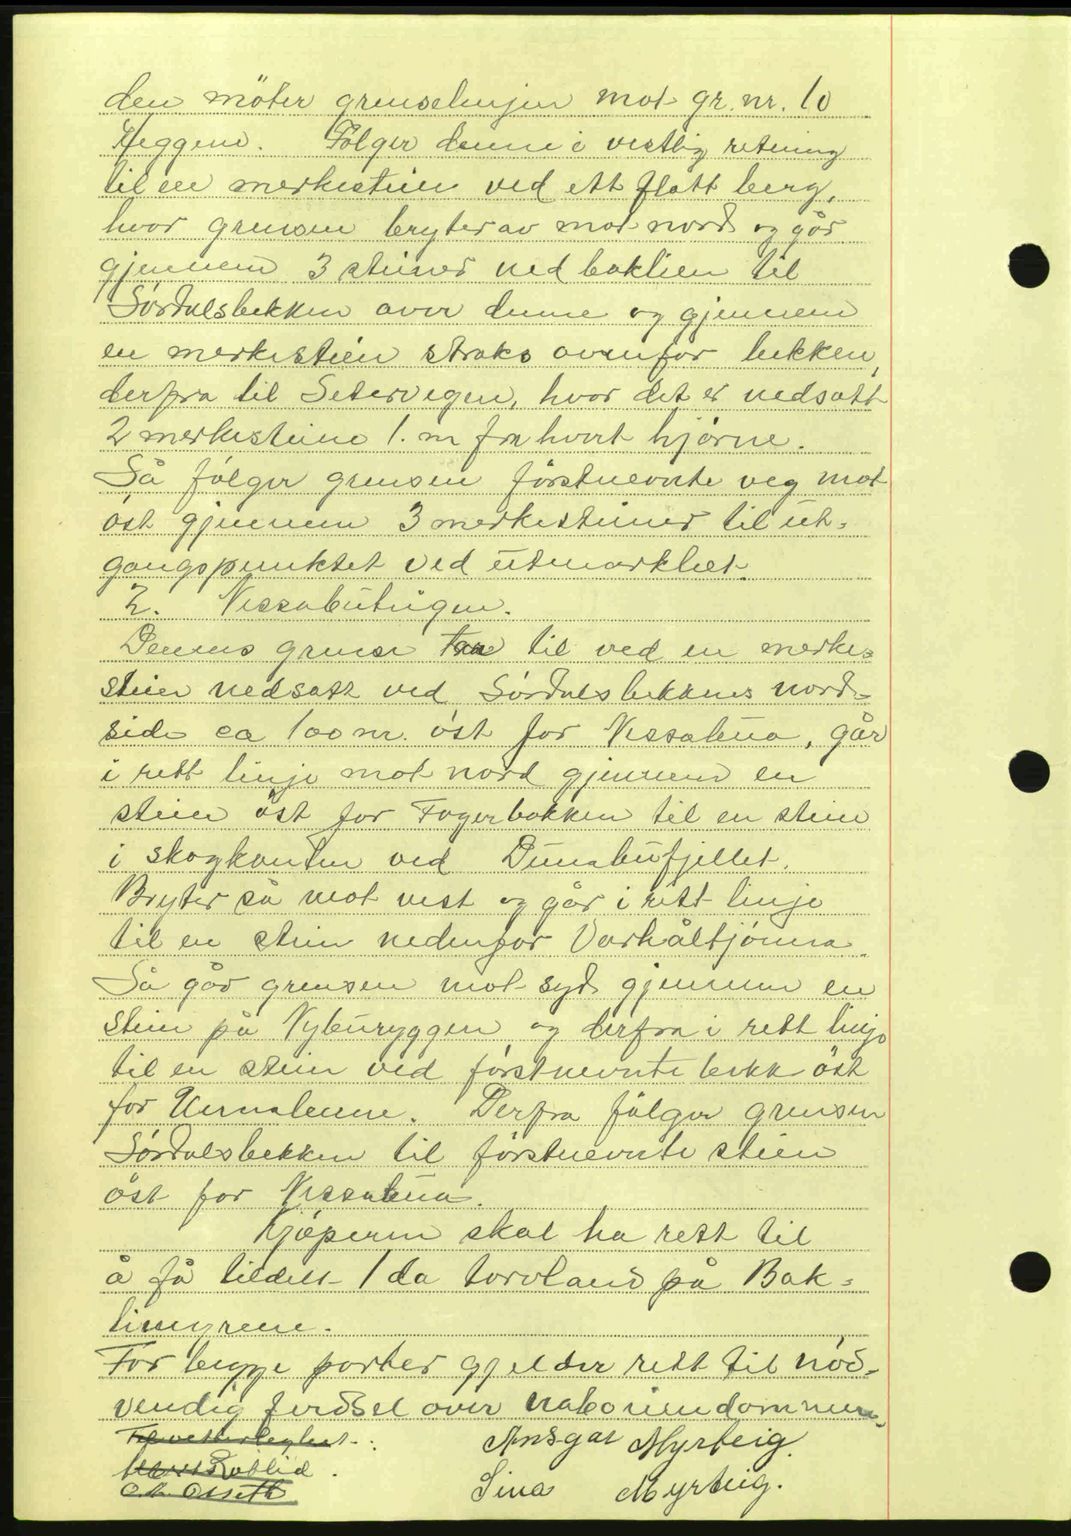 den möter grenselinjen mot gr. nr. 10
Heggem. Fölger denne i vestlig retning
til en merkestein ved ett flatt berg,
hvor grensen bryter av mot nord og går
gjennem 3 steiner ned baklien til
Sördalsbekken over denne og gjennem
en merkestein straks ovenfor bekken,
derfra til Setervegen, hvor det er nedsatt
2 merkesteine 1. m fra hvert hjörne.
Så fölger grensen förstnevnte veg mot
öst gjennem 3 merkesteiner til ut-
gangspunktet ved utmarkhet.
2. Nessabuteigen.
Dennes grense tar til ved en merke-
stein nedsatt ved Sördalsbekkens nord-
side ca 100 m. öst for Nessabua, går
i rett linje mot nord gjennem en
stein öst for Fagerbakken til en stein
i skogkanten ved Dunabufjellet.
Bryter så mot vest og går i rett linje
til en stein nedenfor Varhåltjönna
Så går grensen mot syd gjennem en
stein på Nyburyggen og derfra i rett linje
til en stein ved förstnevnte bekk öst
for. Derfra fölger grensen
Sördalsbekken til förstnevnte stein
öst for Nessabua.
Kjöperen skal ha rett til
å få tildelt 1 da torvland på Bak-
limyrene.
For begge parter gjelder rett til nöd-
vendig ferdsel over naboeiendommen.
Til vitterleghet: Ansgar Myrteig.
Sina Myrteig.